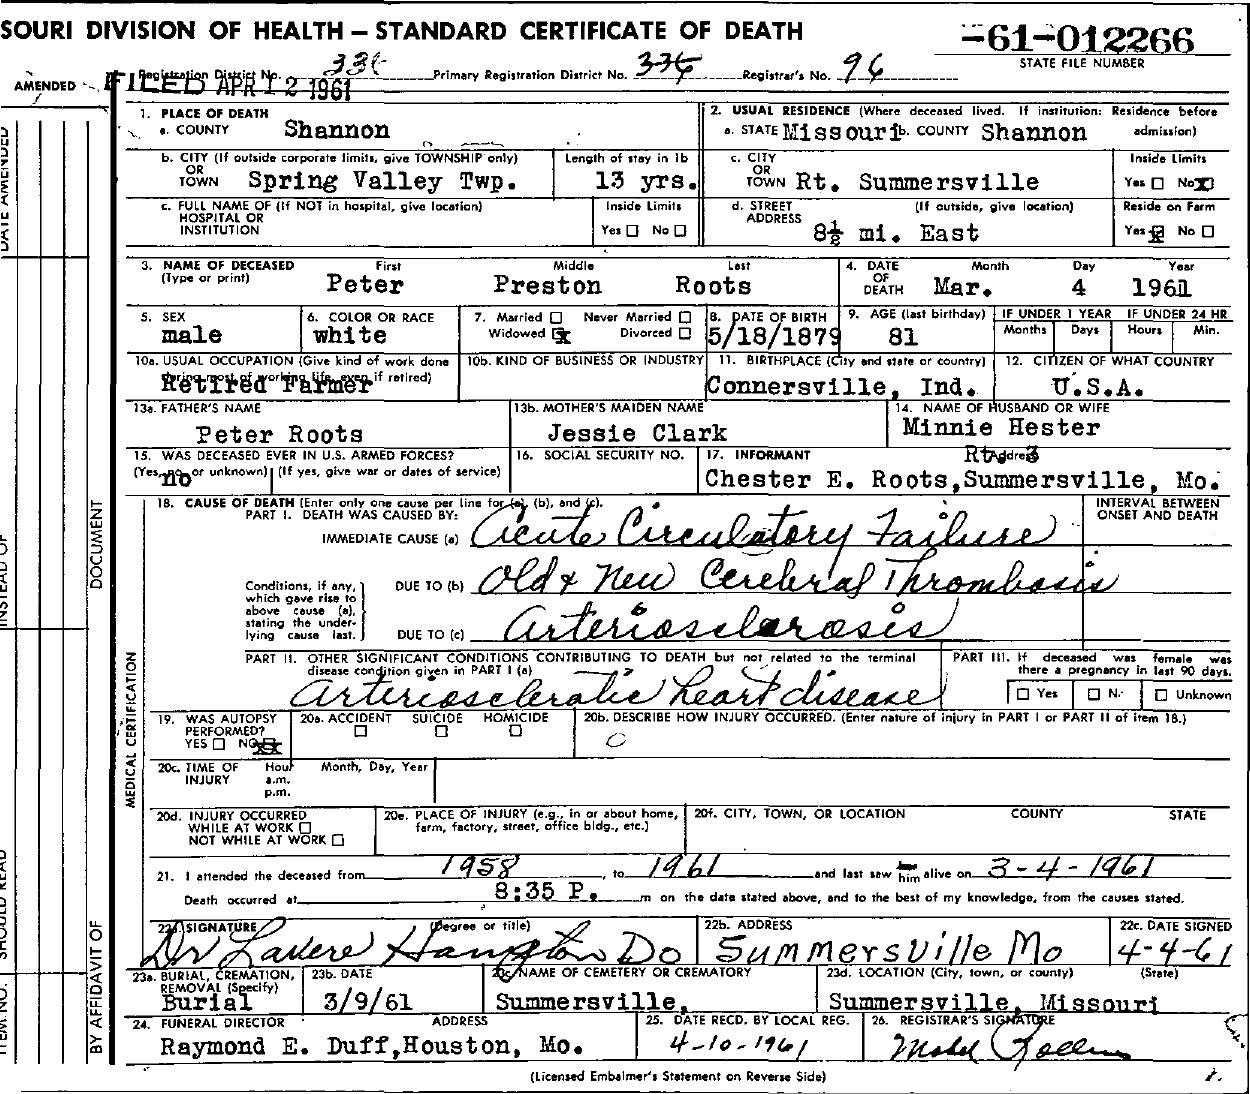 SOURI DIVISION OF HEALTH — STANDARD CERTIFICATE OF DEATH
-61-012266
STATE FILE NUMBER
AMENDED
FILED APR 12 1961
Registration District No. Primary Registration District No. 336 Registrar's No. 96
1. PLACE OF DEATH
a. COUNTY Shannon
2. USUAL RESIDENCE (Where deceased lived. If institution: Residence before admission)
a. STATE Missouri b. COUNTY Shannon
b. CITY (If outside corporate limits, give TOWNSHIP only) OR TOWN Spring Valley Twp.
Length of stay in 1b 13 yrs.
c. CITY OR TOWN Rt. Summersville
Inside Limits Yes □ No ☒
c. FULL NAME OF (If NOT in hospital, give location) HOSPITAL OR INSTITUTION
Inside Limits Yes □ No □
d. STREET ADDRESS (If outside, give location) 8½ mi. East
Reside on Farm Yes ☒ No □
3. NAME OF DECEASED (Type or print) First Middle Last
Peter Preston Roots
4. DATE OF DEATH Month Day Year
Mar. 4 1961
5. SEX male
6. COLOR OR RACE white
7. Married □ Never Married □ Widowed ☒ Divorced □
8. DATE OF BIRTH 5/18/1879
9. AGE (last birthday) 81
IF UNDER 1 YEAR Months Days
IF UNDER 24 HR Hours Min.
10a. USUAL OCCUPATION (Give kind of work done during most of working life, even if retired)
Retired Farmer
10b. KIND OF BUSINESS OR INDUSTRY
11. BIRTHPLACE (City and state or country) Connersville, Ind.
12. CITIZEN OF WHAT COUNTRY U.S.A.
13a. FATHER'S NAME Peter Roots
13b. MOTHER'S MAIDEN NAME Jessie Clark
14. NAME OF HUSBAND OR WIFE Minnie Hester
15. WAS DECEASED EVER IN U.S. ARMED FORCES?
(Yes, no, or unknown) (If yes, give war or dates of service)
no
16. SOCIAL SECURITY NO.
17. INFORMANT Address Rt. 3
Chester E. Roots, Summersville, Mo.
18. CAUSE OF DEATH (Enter only one cause per line for (a), (b), and (c).
PART I. DEATH WAS CAUSED BY:
INTERVAL BETWEEN ONSET AND DEATH
IMMEDIATE CAUSE (a) Acute Circulatory Failure
Conditions, if any, which gave rise to above cause (a), stating the underlying cause last.
DUE TO (b) Old & New Cerebral Thrombosis
DUE TO (c) Arteriosclerosis
PART II. OTHER SIGNIFICANT CONDITIONS CONTRIBUTING TO DEATH but not related to the terminal disease condition given in PART I (a)
Arteriosclerotic heart disease
PART III. If deceased was female was there a pregnancy in last 90 days.
□ Yes □ N. □ Unknown
19. WAS AUTOPSY PERFORMED? YES □ NO ☒
20a. ACCIDENT SUICIDE HOMICIDE
□ □ □
20b. DESCRIBE HOW INJURY OCCURRED. (Enter nature of injury in PART I or PART II of item 18.)
20c. TIME OF INJURY Hour a.m. p.m. Month, Day, Year
20d. INJURY OCCURRED WHILE AT WORK □ NOT WHILE AT WORK □
20e. PLACE OF INJURY (e.g., in or about home, farm, factory, street, office bldg., etc.)
20f. CITY, TOWN, OR LOCATION COUNTY STATE
21. I attended the deceased from 1958, to 1961 and last saw him alive on 3-4-1961
Death occurred at 8:35 P. m on the date stated above, and to the best of my knowledge, from the causes stated.
22a. SIGNATURE (Degree or title)
Dr DO
22b. ADDRESS Summersville Mo
22c. DATE SIGNED 4-4-61
23a. BURIAL, CREMATION, REMOVAL (Specify) Burial
23b. DATE 3/9/61
23c. NAME OF CEMETERY OR CREMATORY Summersville,
23d. LOCATION (City, town, or county) (State) Summersville, Missouri
24. FUNERAL DIRECTOR ADDRESS
Raymond E. Duff, Houston, Mo.
25. DATE RECD. BY LOCAL REG. 4-10-1961
26. REGISTRAR'S SIGNATURE
Mabel
(Licensed Embalmer's Statement on Reverse Side)
DATE AMENDED
INSTEAD OF
DOCUMENT
MEDICAL CERTIFICATION
SHOULD READ
ITEM NO.
BY AFFIDAVIT OF